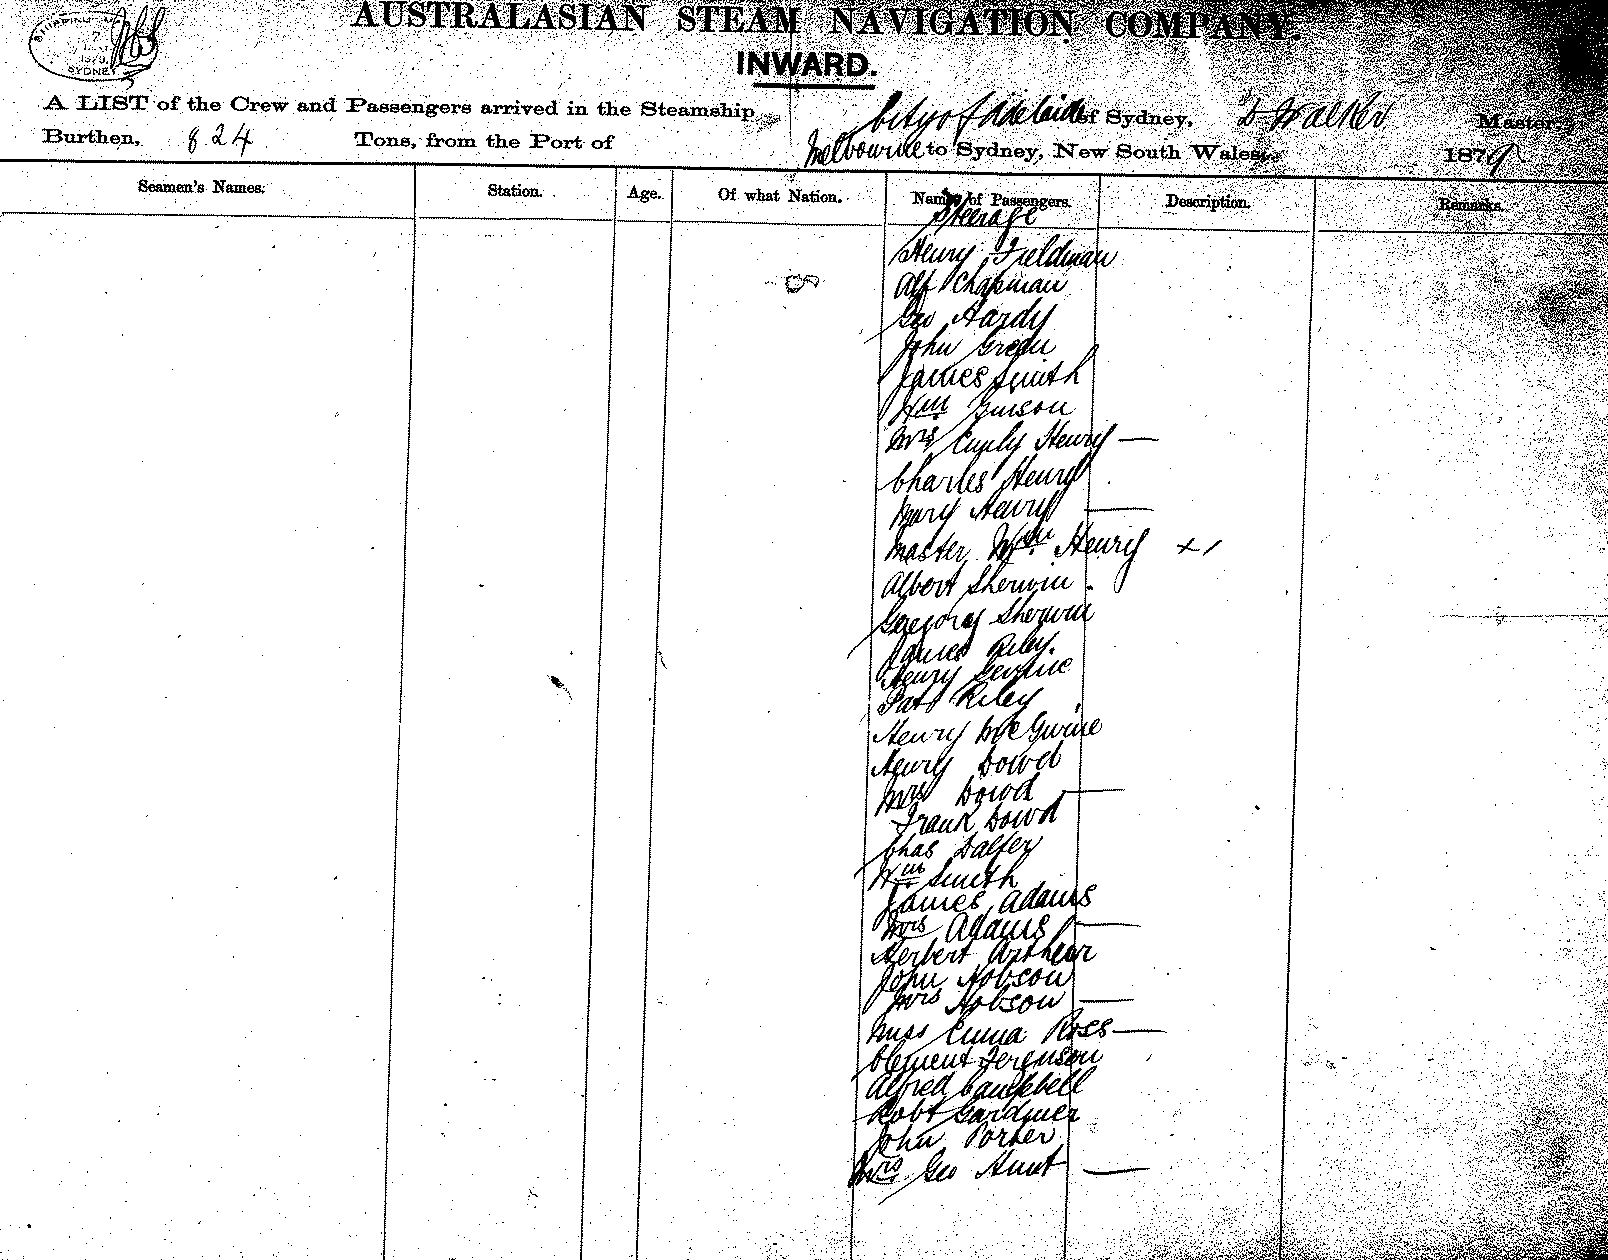 AUSTRALASIAN STEAM NAVIGATION COMPANY.
SHIPPING
7
1879
SYDNEY
INWARD.
A LIST of the Crew and Passengers arrived in the Steamship City of Adelaide of Sydney, D Walker Master
Burthen, 824 Tons, from the Port of Melbourne to Sydney, New South Wales 1879
Seamen's Names. Station. Age. Of what Nation. Names of Passengers. Description. Remarks.
Steerage
Henry Fieldman
Alf Chapman
Geo Hardy
John Green
James Smith
Wm
Mrs Emily Henry —
Charles Henry
Mary Henry —
Master Wm Henry x /
Albert Sherwin
Gregory Sherwin
James Riley.
Henry
Pat Riley
Henry McGwire
Henry Dowd
Mrs Dowd —
Frank Dowd
Chas
Wm Smith
James Adams
Mrs Adams —
Herbert Arthur
John Hobson
Mrs Hobson —
Miss Emma Ross —
Clement Ferguson
Alfred Campbell
Robt Gardiner
John Porter
Mrs Geo Hunt —